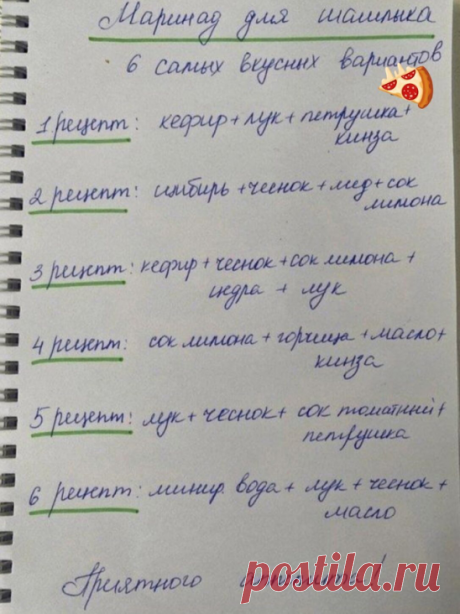 Маринад для шашлыка
6 самых вкусных вариантов
1 рецепт: кефир + лук + петрушка +
кинза
2 рецепт: имбирь + чеснок + мед + сок
лимона
3 рецепт: кефир + чеснок + сок лимона +
цедра + лук
4 рецепт: сок лимона + горчица + масло +
кинза
5 рецепт: лук + чеснок + сок томатный +
петрушка
6 рецепт: минер. вода + лук + чеснок +
масло
Приятного аппетита!
postila.ru